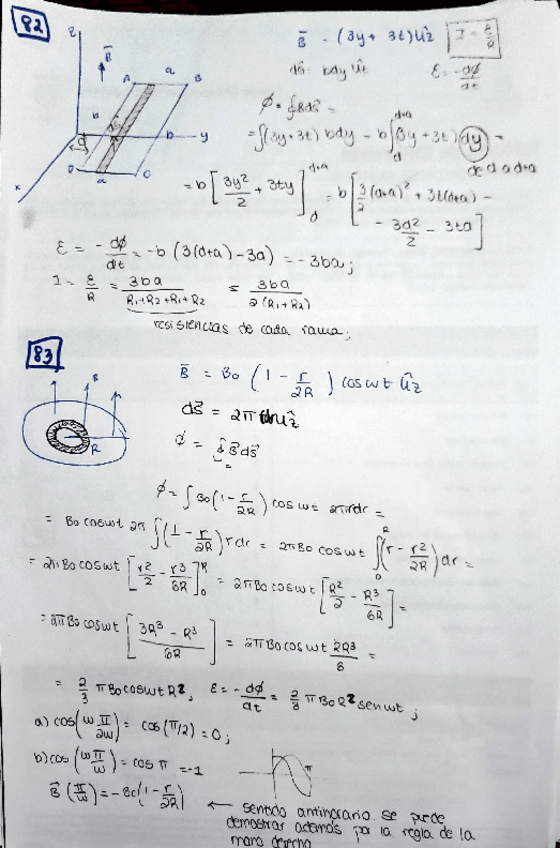 82
z
B̄
A
a
B
b
b
y
d
x
D
a
C
B̄ = (3y + 3t) ûz
I = ε/R
ds̄ = b dy ûz
ε = -dϕ/dt
ϕ = ∮ B̄ds̄ =
= ∫(3y+3t) bdy = b∫(3y+3t) dy =
d+a
d
de d a d+a
= b [3y²/2 + 3ty] d+a d = b [3/2 (d+a)² + 3t(d+a) -
- 3d²/2 - 3ta]
ε = -dϕ/dt = -b (3(d+a) - 3a) = -3ba;
I = ε/R = 3ba/(R₁+R₂+R₁+R₂) = 3ba/2(R₁+R₂)
resistencias de cada rama;
83
B
R
B̄ = Bo (1 - r/2R) cos wt ûz
ds̄ = 2π dr ûz
ϕ = ∮ B̄ds̄
=
ϕ = ∫ Bo (1 - r/2R) cos wt 2πrdr =
= Bo cos wt 2π ∫(1 - r/2R) r dr = 2πBo cos wt ∫₀ᴿ (r - r²/2R) dr =
= 2πBo cos wt [r²/2 - r³/6R]₀ᴿ = 2πBo cos wt [R²/2 - R³/6R] =
= 2πBo cos wt [3R³ - R³/6R] = 2πBo cos wt 2R³/6 =
= 2/3 πBo cos wt R², ε = -dϕ/dt = 2/3 π Bo R² sen wt;
a) cos(w π/2w) = cos (π/2) = 0;
b) cos (w π/w) = cos π = -1
π
B̄ (π/w) = -Bo (1 - r/2R)
← sentido antihorario. se puede
demostrar además por la regla de la
mano derecha